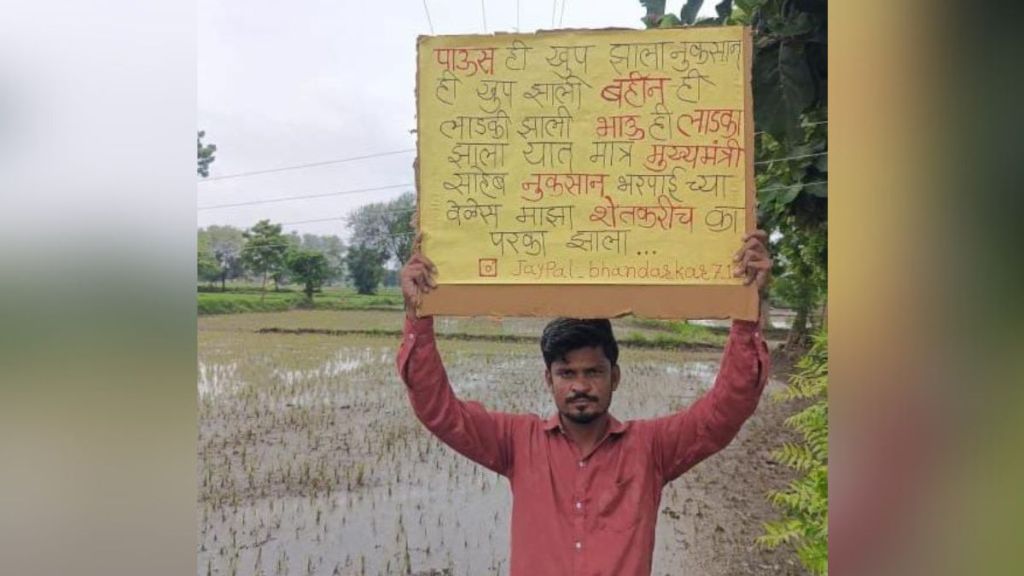 पाऊस ही खुप झाला नुकसान
ही खुप झाली बहीन ही
लाडकी झाली भाऊ ही लाडका
झाला यात मात्र मुख्यमंत्री
साहेब नुकसान भरपाई च्या
वेळेस माझा शेतकरीच का
परका झाला...
JayPal_bhandarkar712